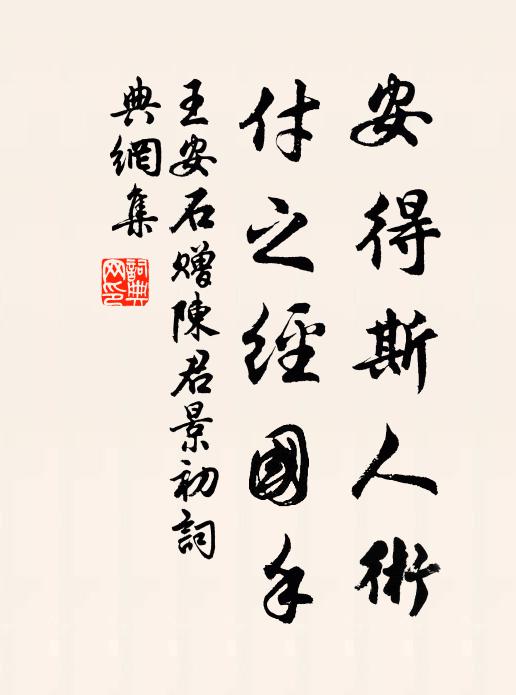 安得斯人術
付之經國手
王安石贈陳君景初詞
典網集
詞典
网印